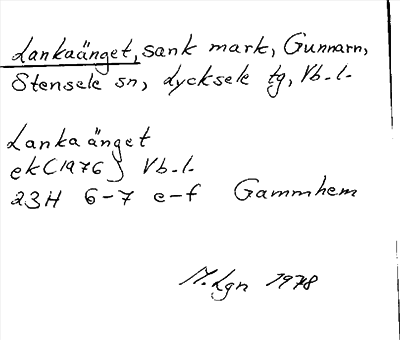 Lankaänget, sank mark, Gunnarn,
Stensele sn, Lycksele tg, Vb.l.
Lankaänget
ek (1976) Vb.l.
23H 6-7 e-f Gammhem
M.Lgn 1978